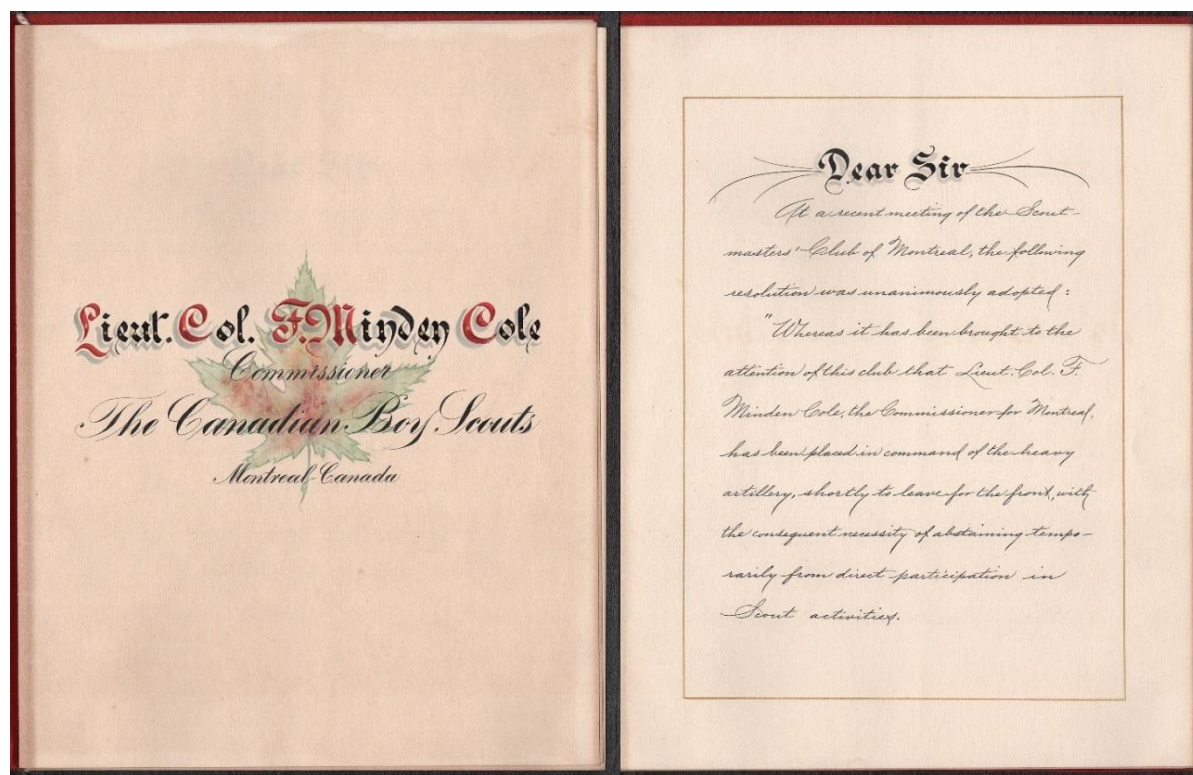 Lieut. Col. F. Minden Cole
Commissioner
The Canadian Boy Scouts
Montreal-Canada
Dear Sir
At a recent meeting of the Scout-
masters' Club of Montreal, the following
resolution was unanimously adopted :
"Whereas it has been brought to the
attention of this club that Lieut. Col. F.
Minden Cole, the Commissioner for Montreal,
has been placed in command of the heavy
artillery, shortly to leave for the front, with
the consequent necessity of abstaining tempo-
rarily from direct participation in
Scout activities.